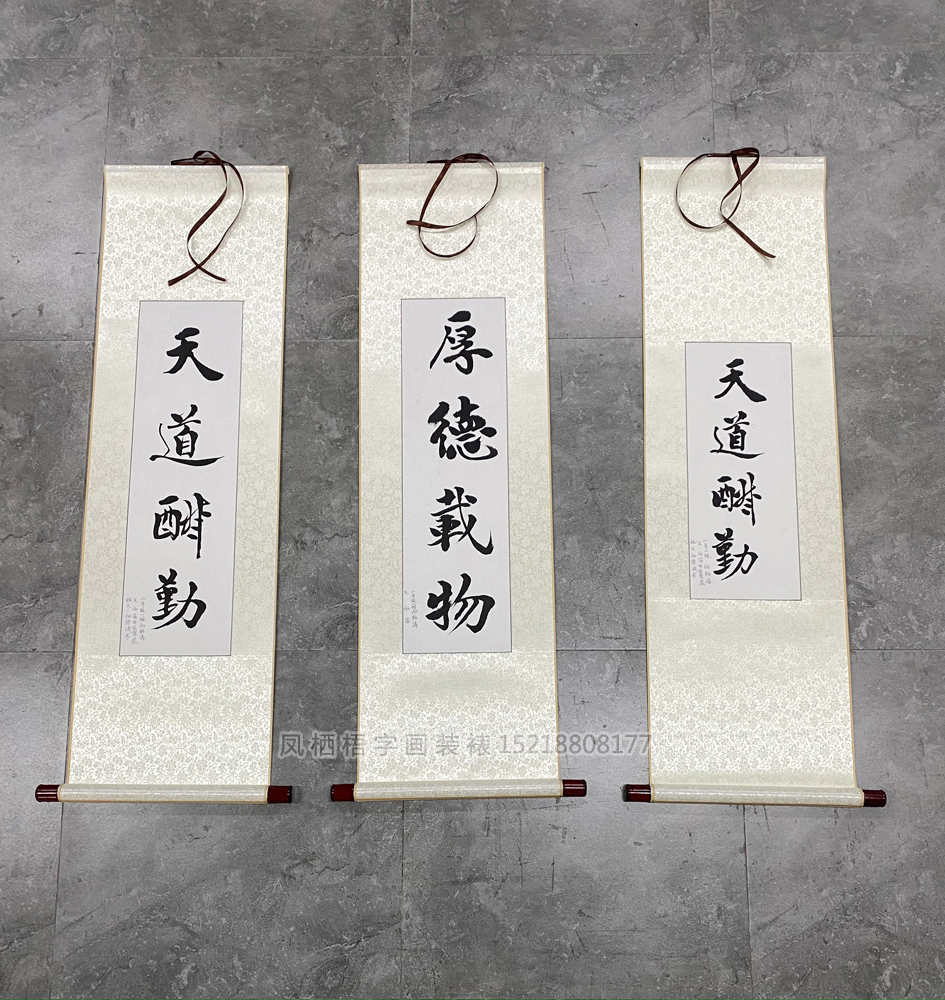 天道酬勤
厚德载物
天道酬勤
凤栖梧字画装裱 15218808177